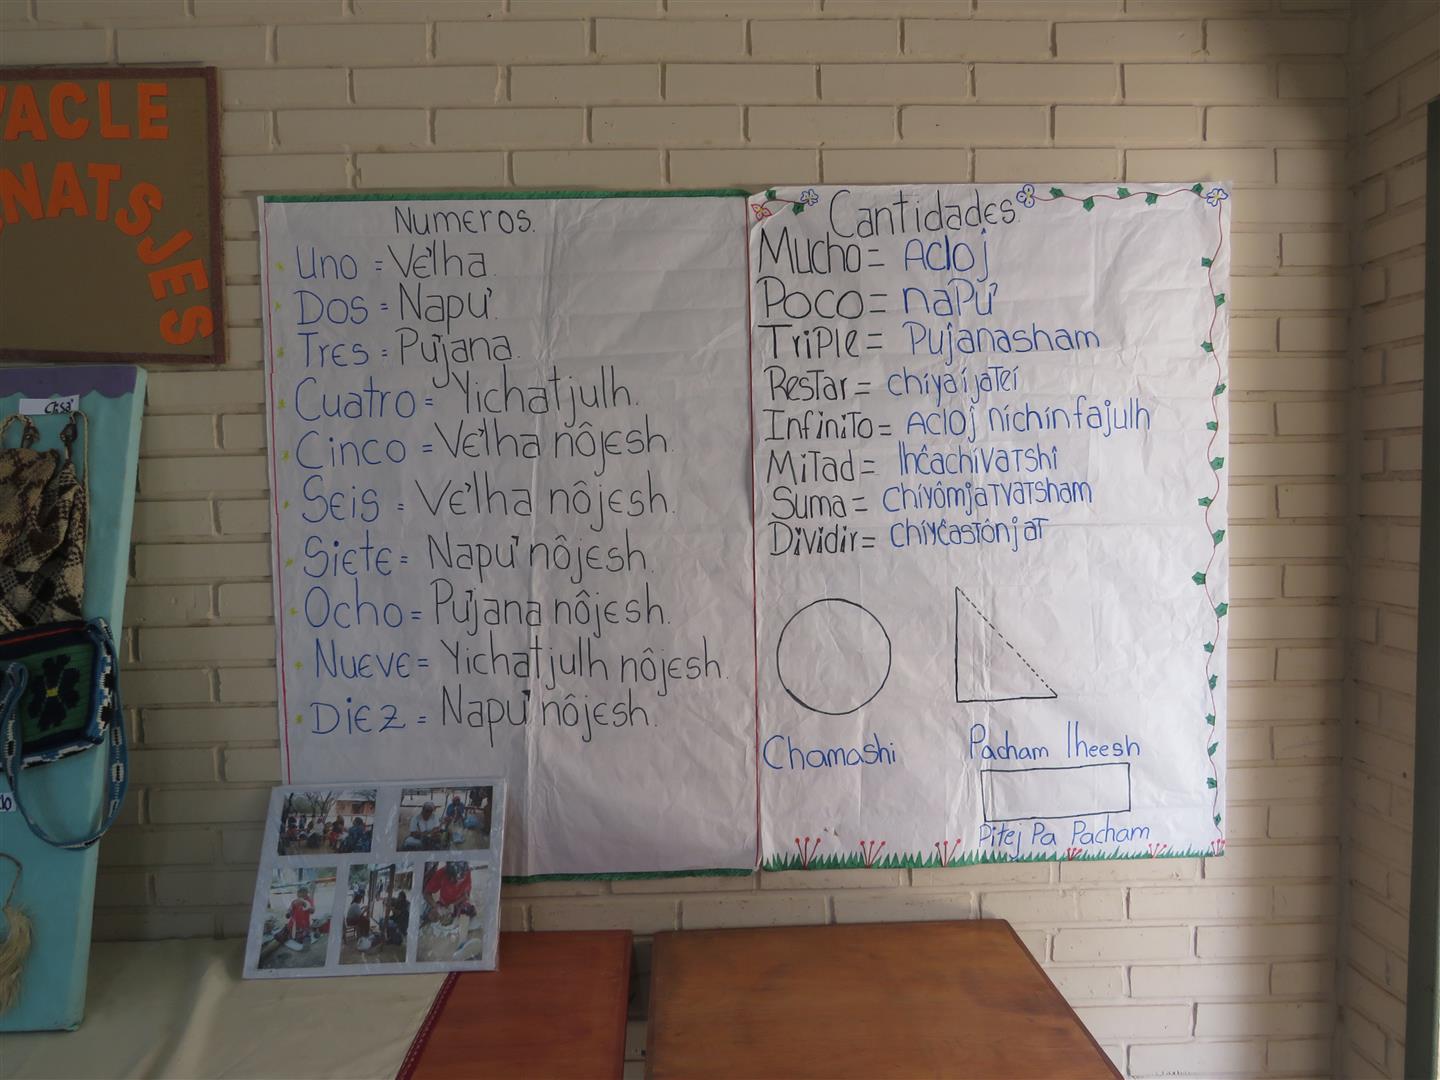 ACLE
NATSJES
Numeros.
Uno = Ve'lha.
Dos = Napu'.
Tres = Pu'jana.
Cuatro = Yichatjulh.
Cinco = Ve'lha nôjesh.
Seis = Ve'lha nôjesh.
Siete = Napu' nôjesh.
Ocho = Pu'jana nôjesh.
Nueve = Yichatjulh nôjesh.
Diez = Napu' nôjesh.
Cantidades
Mucho = Acloj
Poco = napu'
Triple = Pujanasham
Restar = chiyaijatei
Infinito = Acloj nichinfajulh
Mitad = lhĉachivatshi
Suma = chiyômjatvatsham
Dividir = chiyĉastônjat
Chamashi
Pacham lheesh
Pitej Pa Pacham